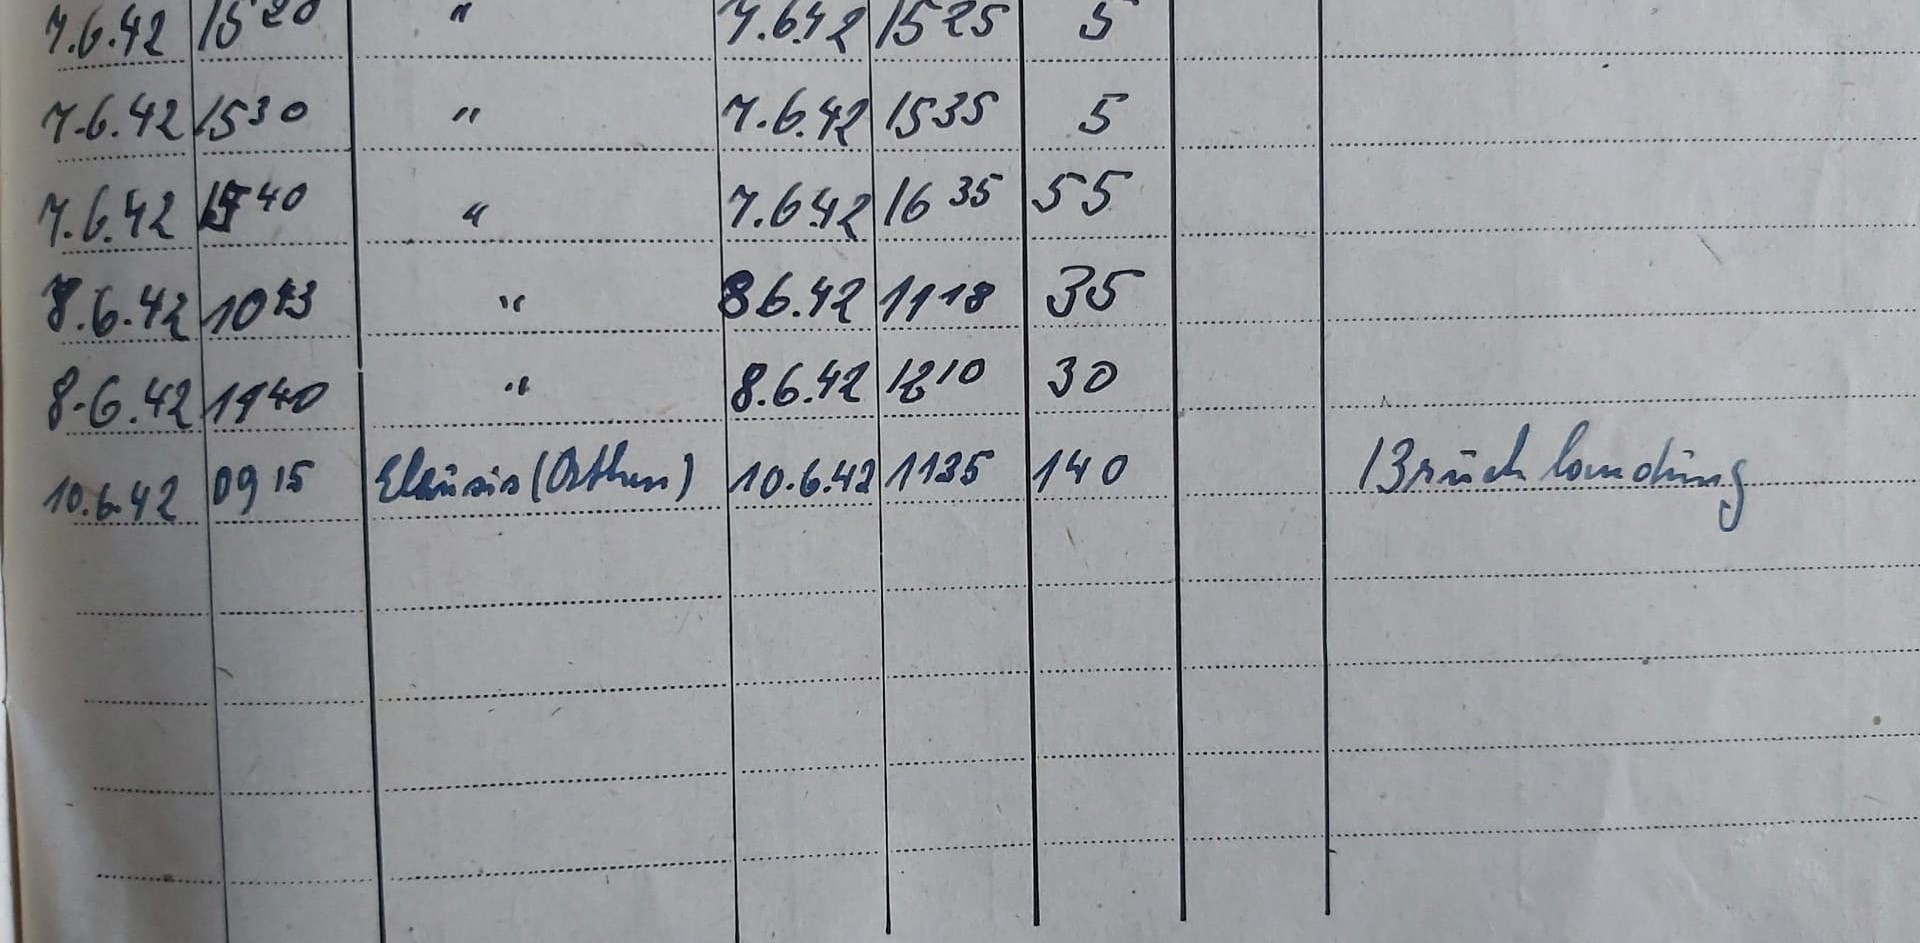 7.6.42 15 20 " 7.6.42 15 25 5
7.6.42 15 30 " 7.6.42 15 35 5
7.6.42 15 40 " 7.6.42 16 35 55
8.6.42 10 43 " 8 6.42 11 18 35
8.6.42 11 40 " 8.6.42 12 10 30
10.6.42 09 15 Eleusis (Athen) 10.6.42 11 35 140 Bruchlandung